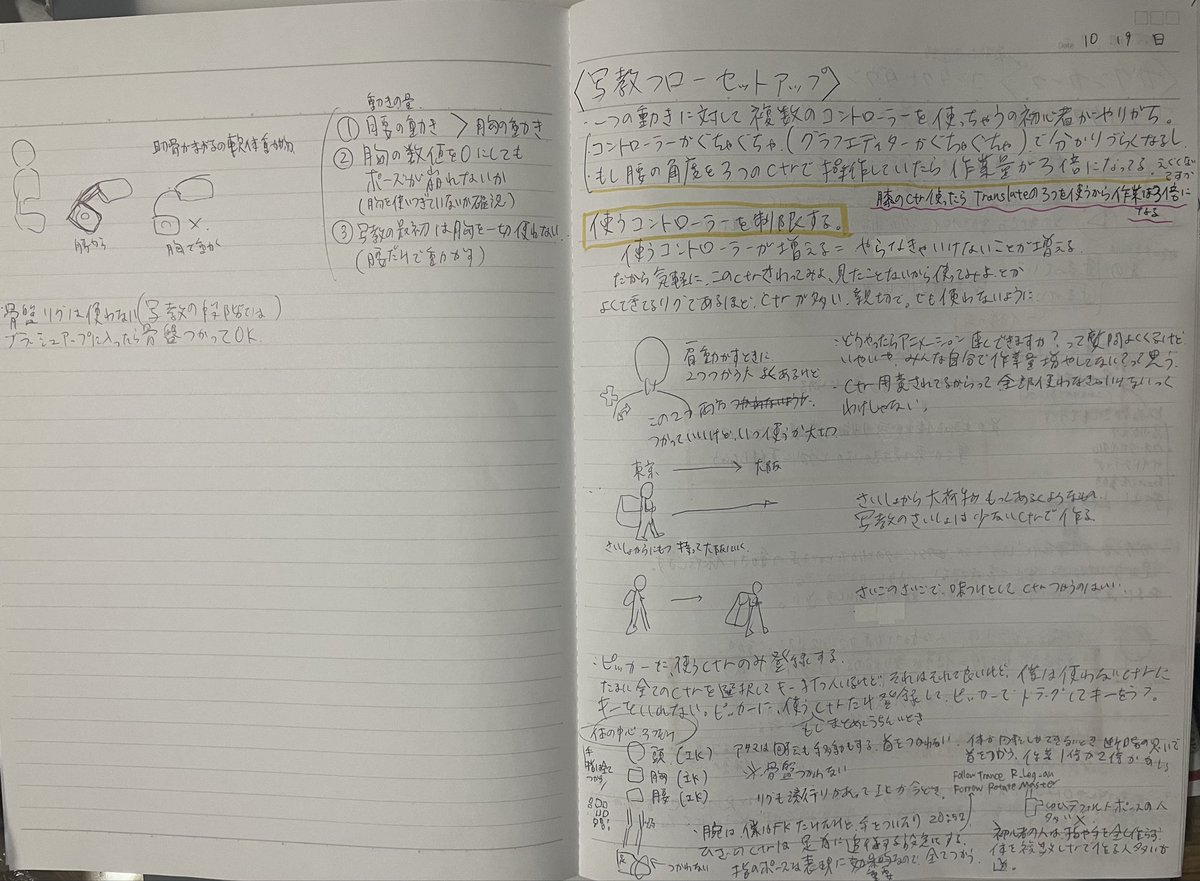 動きの量
① 腰の動き > 胸の動き
② 胸の数値を0にしても
ポーズが崩れないか
(胸を使いすぎていないか確認)
③ 写教の最初は胸を一切使わない
(腰だけで動かす)
肋骨がまがるの軟体動物
胸で動く
骨盤リグは使わない(写教の段階では)
ブラッシュアップに入ったら骨盤つかってOK.
Date 10 19 日
〈写教フローセットアップ〉
・一つの動きに対して複数のコントローラーを使っちゃうの初心者がやりがち.
・コントローラーがぐちゃぐちゃ.(グラフエディターがぐちゃぐちゃ)で分かりづらくなるし
・もし腰の角度を3つのctrで操作していたら作業量が3倍になってる.えぐくないですか
膝のctr使ったら Translateの3つを使うから作業は3倍になる
使うコントローラーを制限する。
使うコントローラーが増える = やらなきゃいけないことが増える
だから気軽に、このctrさわってみよ、見たことないから使ってみよとか
よくできてるリグであるほど、ctrが多い、親切で。でも使わないように
肩動かすときに
2つつかう人よくあるけど
この2つ両方
つかっていいけど、いつ使うが大切
・どうやったらアニメーション速くできますか?って質問よくくるけど
いやいやみんな自分で作業量増やしてない?って思う.
・ctr用意されてるからって全部使わなきゃいけないって
わけじゃない。
東京 → 大阪
さいしょからにもつ持って大阪にいく
さいしょから大荷物もってあるくようなもの
写教のさいしょは少ないctrで作る
→
さいごのさいごで、味つけとしてctrつかうのはいい..
・ピッカーに、使うctrのみ登録する.
たまに全てのctrを選択してキーうつ人いるけど、それはそれで良いけど、僕は使わないctrに
キーをいれない。ピッカーに、使うctrだけ登録して、ピッカーでドラッグしてキーをうつ。
もしまとめてうちたいとき
体の中心3つだけ
頭 (IK)
胸 (IK)
腰 (IK)
アタマは回転も移動もする.首をつかわない.
※骨盤つかわない
リグも流行りがあってIKが今どき.
Follow Trance R_Leg_an
Follow Rotate Master
・腕は僕はFKだけだけど、手をついたり 20:52
ひざのctrは足首に追従する設定にする.
つかわない
指のポーズは表現に効果的なので全てつかう.
重要